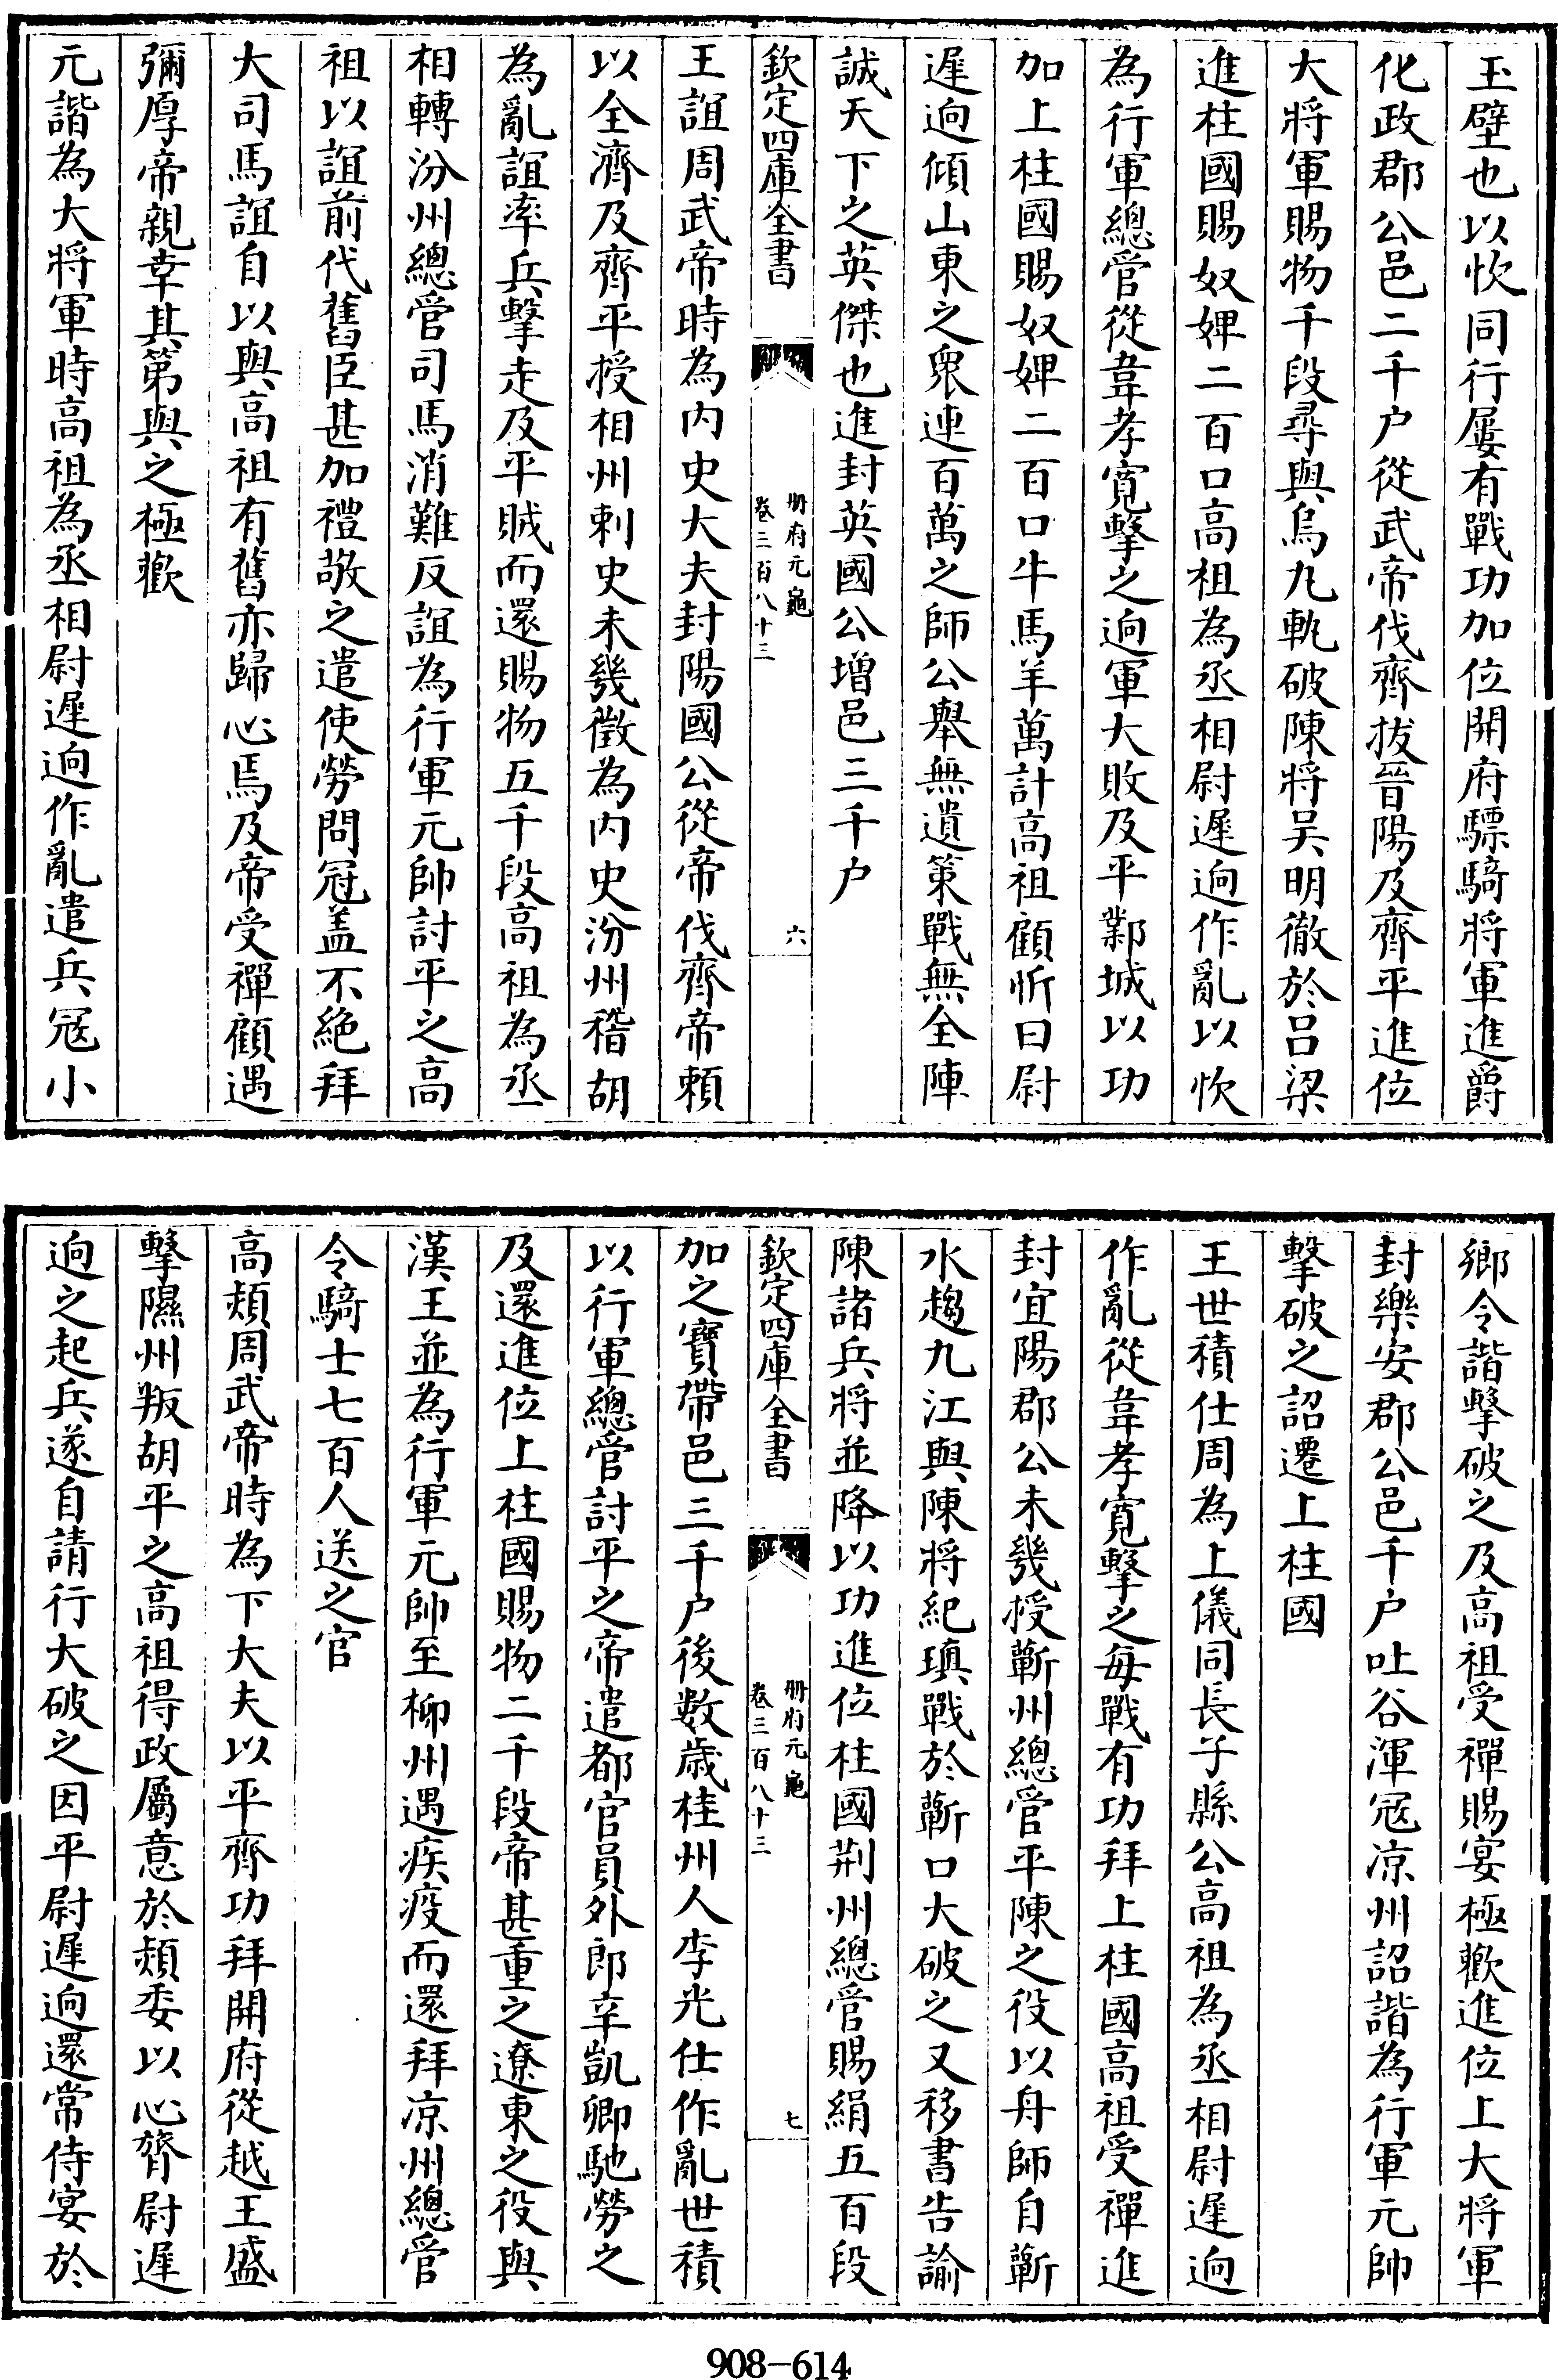 玉壁也以忻同行屢有戰功加位開府驃騎將軍進爵
化政郡公邑二千户從武帝伐齊拔晉陽及齊平進位
大將軍賜物千段尋與烏丸軌破陳將吴明徹於吕梁
進柱國賜奴婢二百口高祖為丞相尉遲迥作亂以忻
為行軍總管從韋孝寛擊之迥軍大敗及平鄴城以功
加上柱國賜奴婢二百口牛馬羊萬計高祖顧忻曰尉
遲迥傾山東之衆連百萬之師公舉無遺策戰無全陣
誠天下之英傑也進封英國公增邑三千户
欽定四庫全書
册府元龜
卷三百八十三
六
王誼周武帝時為内史大夫封陽國公從帝伐齊帝頼
以全濟及齊平授相州刺史未幾徵為内史汾州稽胡
為亂誼率兵擊走及平賊而還賜物五千段高祖為丞
相轉汾州總管司馬消難反誼為行軍元帥討平之高
祖以誼前代舊臣甚加禮敬之遣使勞問冠盖不絶拜
大司馬誼自以與高祖有舊亦歸心焉及帝受禪顧遇
彌厚帝親幸其第與之極歡
元諧為大將軍時高祖為丞相尉遲迥作亂遣兵寇小
鄉令諧擊破之及高祖受禪賜宴極歡進位上大將軍
封樂安郡公邑千户吐谷渾寇凉州詔諧為行軍元帥
擊破之詔遷上柱國
王世積仕周為上儀同長子縣公高祖為丞相尉遲迥
作亂從韋孝寛擊之毎戰有功拜上柱國高祖受禪進
封宜陽郡公未幾授蘄州總管平陳之役以舟師自蘄
水趨九江與陳將紀瑱戰於蘄口大破之又移書告諭
陳諸兵將並降以功進位柱國荆州總管賜絹五百段
欽定四庫全書
册府元龜
卷三百八十三
七
加之寳帶邑三千户後數歲桂州人李光仕作亂世積
以行軍總管討平之帝遣都官員外郎辛凱卿馳勞之
及還進位上柱國賜物二千段帝甚重之遼東之役與
漢王並為行軍元帥至柳州遇疾疫而還拜凉州總管
令騎士七百人送之官
高熲周武帝時為下大夫以平齊功拜開府從越王盛
擊隰州叛胡平之高祖得政屬意於熲委以心膂尉遲
迥之起兵遂自請行大破之因平尉遲迥還常侍宴於
908-614